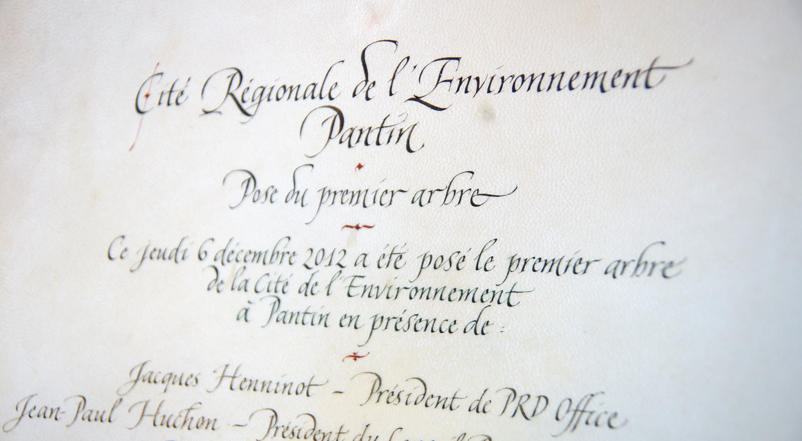 Cité Régionale de l'Environnement
Pantin
Pose du premier arbre
Ce jeudi 6 décembre 2012 a été posé le premier arbre
de la Cité de l'Environnement
à Pantin en présence de :
Jacques Henninot – Président de PRD Office
Jean-Paul Huchon – Président du